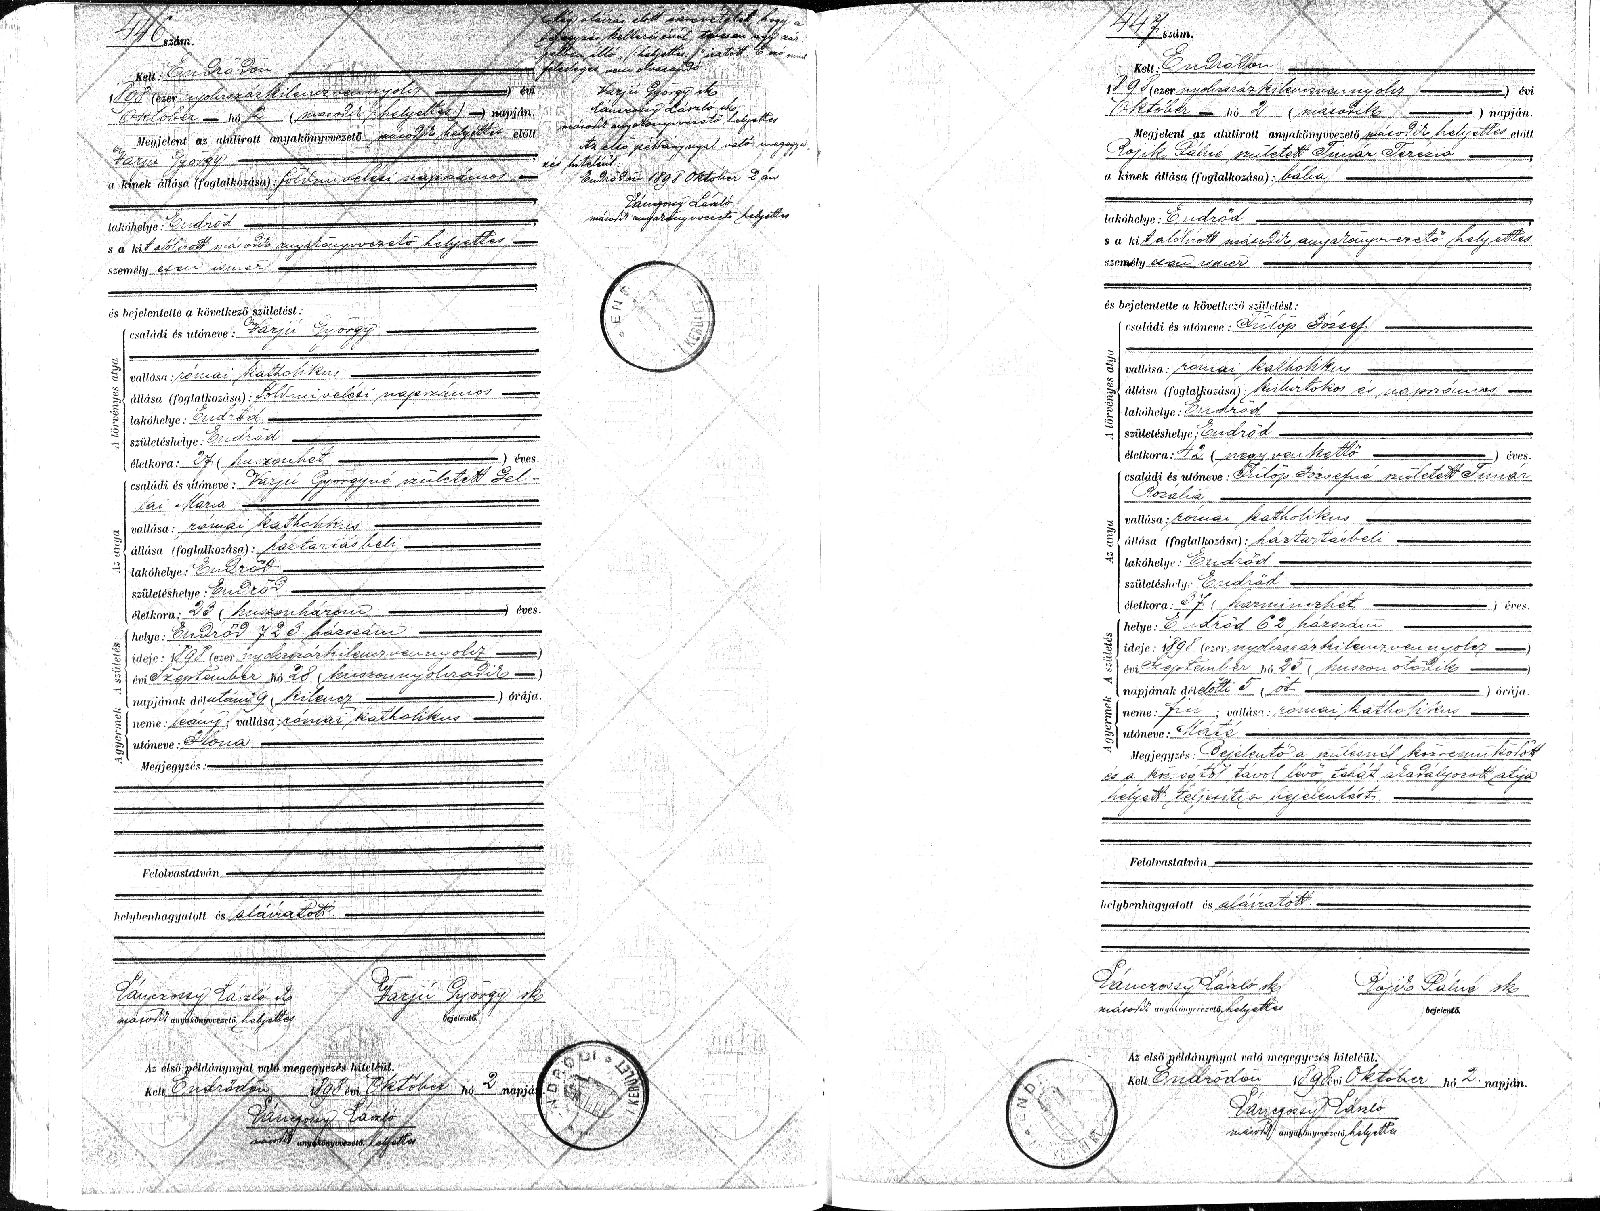 446 szám.
Kelt: Endrődön
1898 (ezer nyolcszázkilenczvennyolcz) évi
Október hó 2 (második helyettes) napján.
Megjelent az alulirott anyakönyvvezető második helyettes előtt
Varjú György
a kinek állása (foglalkozása): földmivelési napszámos
lakóhelye: Endrőd
s a kit alólirott második anyakönyvvezető helyettes
személyesen ismer
és bejelentette a következő születést:
A törvényes atya
családi és utóneve: Varjú György
vallása: római katholikus
állása (foglalkozása): földmivelési napszámos
lakóhelye: Endrőd
születéshelye: Endrőd
életkora: 27 (huszonhét) éves.
Az anya
családi és utóneve: Varjú Györgyné született Gel-
lai Mária
vallása: római katholikus
állása (foglalkozása): háztartásbeli
lakóhelye: Endrőd
születéshelye: Endrőd
életkora: 23 (huszonhárom) éves.
A születés
helye: Endrőd 723 házszám
ideje: 1898 (ezer nyolcszázkilenczvennyolcz)
évi Szeptember hó 28 (huszonnyolcadik)
napjának délutáni 9 (kilencz) órája.
A gyermek
neme: leány; vallása: római katholikus
utóneve: Ilona
Megjegyzés:
Felolvastatván
helybenhagyatott és aláiratott.
Lánczossy László sk
második anyakönyvvezető helyettes
Varjú György sk
bejelentő.
Az első példánynyal való megegyezés hiteléül.
Kelt Endrődön 1898 évi Október hó 2 napján
Lánczossy László
második anyakönyvvezető helyettes
ENDRŐDI KERÜLET
Még aláirás előtt hogy a
Varjú György sk
Lánczossy László sk
második anyakönyvvezető helyettes
Az első példánynyal való megegye-
zés hiteléül.
Endrődön 1898 Október 2 án
Lánczossy László
második anyakönyvvezető helyettes
447 szám.
Kelt: Endrődön
1898 (ezer nyolcszázkilenczvennyolcz) évi
Október hó 2 (második) napján.
Megjelent az alulirott anyakönyvvezető második helyettes előtt
Rojik Pálné született Timár Terézia
a kinek állása (foglalkozása): bába
lakóhelye: Endrőd
s a kit alólirott második anyakönyvvezető helyettes
személyesen ismer
és bejelentette a következő születést:
A törvényes atya
családi és utóneve: Fülöp József
vallása: római katholikus
állása (foglalkozása) kisbirtokos és napszámos
lakóhelye: Endrőd
születéshelye: Endrőd
életkora: 42 (negyvenkettő) éves.
Az anya
családi és utóneve: Fülöp Józsefné született Timár
Rozália
vallása: római katholikus
állása (foglalkozása): háztartásbeli
lakóhelye: Endrőd
születéshely: Endrőd
életkora: 37 (harminczhét) éves.
A születés
helye: Endrőd 62 házszám
ideje: 1898 (ezer nyolcszázkilenczvennyolcz)
évi Szeptember hó 25 (huszonötödik)
napjának délelőtti 5 (öt) órája.
A gyermek
neme: fiu; vallása: római katholikus
utóneve: Máté
Megjegyzés: Bejelentő a szülésnél közreműködött
és a községtől távol lévő tehát akadályozott atya
helyett teljesiti a bejelentést.
Felolvastatván
helybenhagyatott és aláiratott.
Lánczossy László sk
második anyakönyvvezető helyettes
Rojik Pálné sk
bejelentő.
Az első példánynyal való megegyezés hiteléül.
Kelt Endrődön 1898 évi Október hó 2 napján.
Lánczossy László
második anyakönyvvezető helyettes